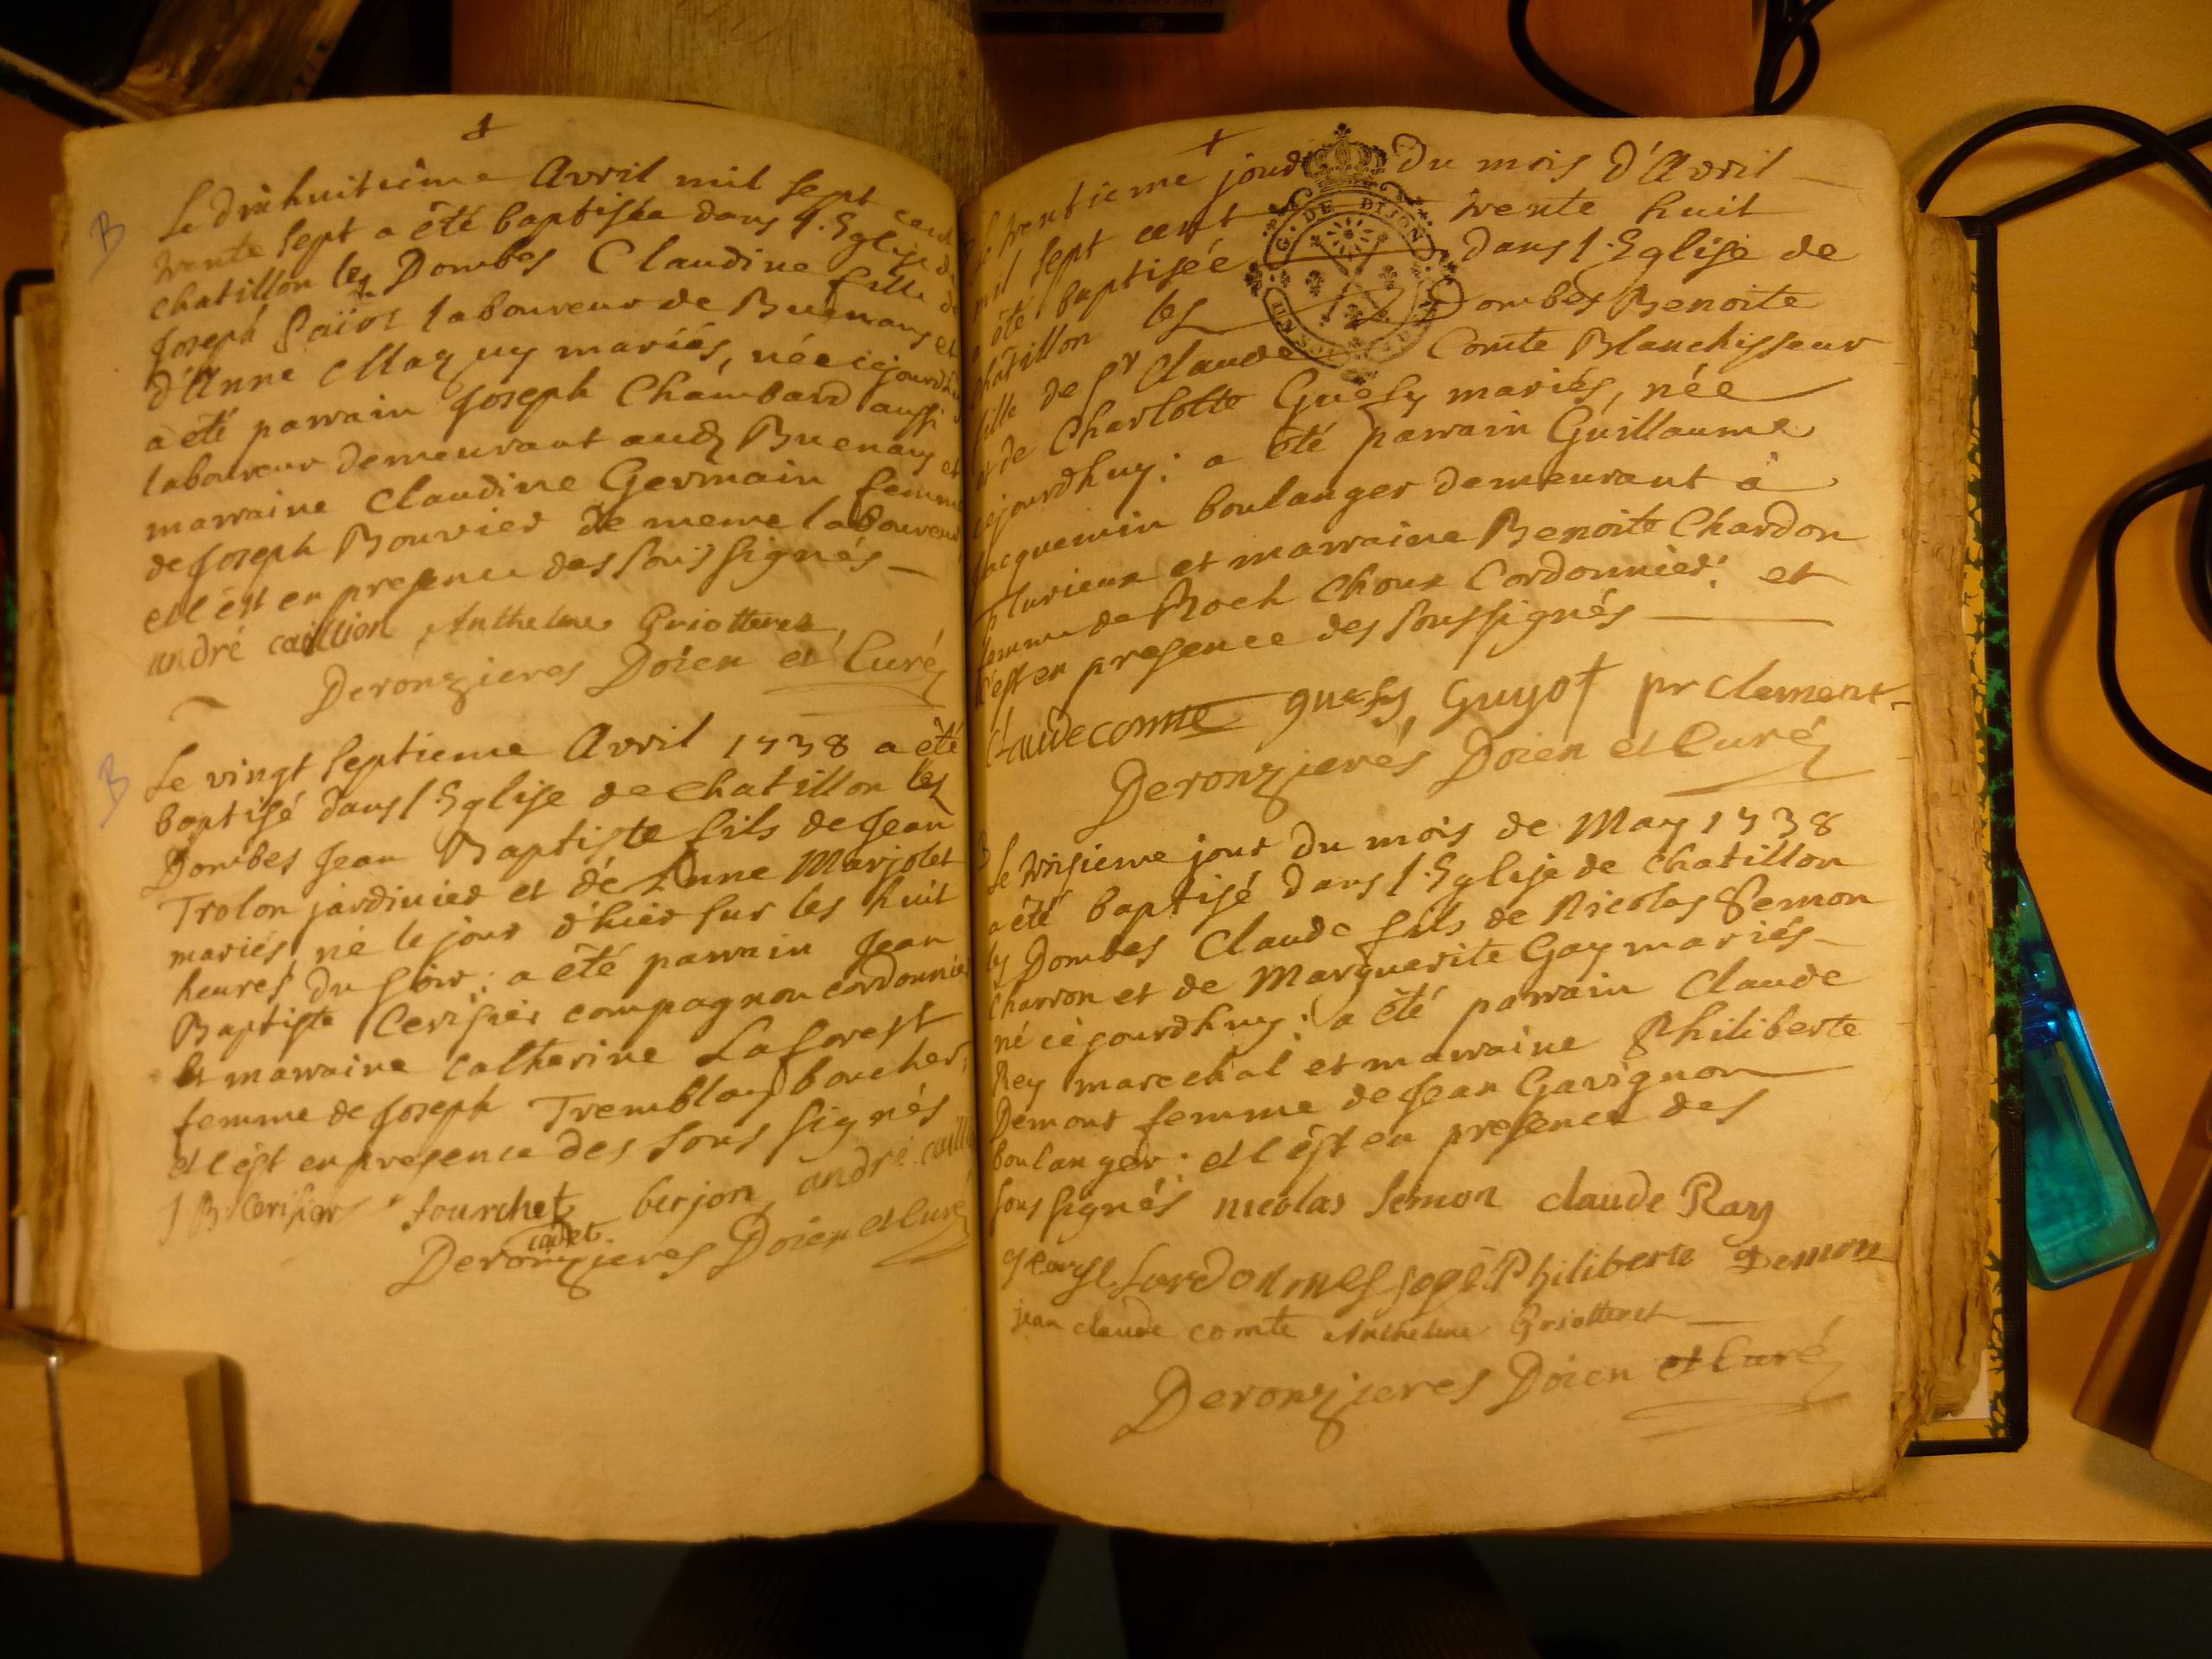 Le dixhuitième Avril mil sept cent
trente sept a été baptisée dans l'Eglise de
chatillon les Dombes Claudine fille de
Joseph laboureur de Buenans et
d'Anne mariés, née cejourdhuy
a été parrain Joseph Chambard aussi
laboureur demeurant aud Buenans et
marraine Claudine Germain femme
de Joseph Bouvier de meme laboureur
et l'est en presence des sous signés
andré caillion, Anthelme Griotteret,
Deronzieres Doien et Curé
Le vingt septieme Avril 1738 a été
baptisé dans l'Eglise de chatillon les
Dombes Jean Baptiste fils de Jean
Trolon jardinier et de Anne Marjolet
mariés, né le jour d'hier sur les huit
heures du soir; a été parrain Jean
Baptiste Cerisier compagnon cordonnier
et marraine Catherine Laforest
femme de Joseph Tremblay boucher;
et l'est en presence des sous signés
J B Cerisier fourchet berjon, andré
cadet
Deronzieres Doien et Curé
Le trentieme jour du mois d'Avril
mil sept cent trente huit
a été baptisée dans l'Eglise de
chatillon les Dombes Benoite
fille de Sr Claude Comte Blanchisseur
et de Charlotte Guesy mariés, née
cejourdhuy; a été parrain Guillaume
Jacquemin boulanger demeurant à
Flurieux et marraine Benoite Chardon
femme de Roch Choux Cordonnier; et
l'est en presence des soussignés
Claudecomte guesy, Guyot pr clement
Deronzierés Doien et Curé
Le troisieme jour du mois de May 1738
a été baptisé dans l'Eglise de chatillon
les Dombes Claude fils de Nicolas Semon
charron et de Marguerite Gay mariés
né cejourdhuy; a été parrain Claude
Rey marechal et marraine Philiberte
Demont femme de Jean Gavignon
boulanger; et l'est en presence des
sous signés nicolas semon claude Ray
Philiberte Demon
jean claude comte Anthelme Griotteret
Deronzieres Doien et Curé
G. DE DIJON